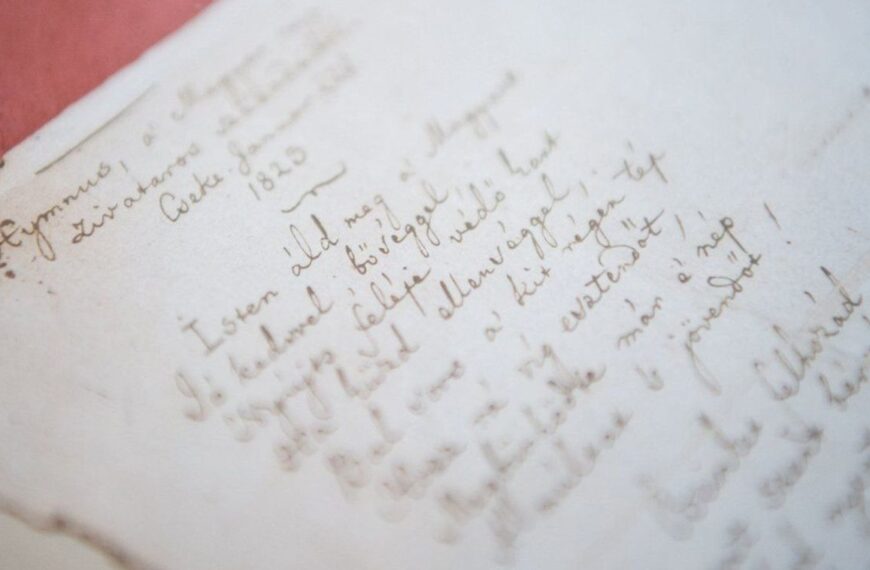 Hymnus, a' Magyar
zivataros
Cseke Januar
1823
Isten áld meg a' Magyart
Jó kedvvel bőséggel,
Nyújts feléje védő kart
Ha küzd ellenséggel;
Bal sors a' kit régen tép
Hozz rá víg esztendőt!
Megbünhödte már e' nép
A' multat 's jövendőt!
felhozád
szent